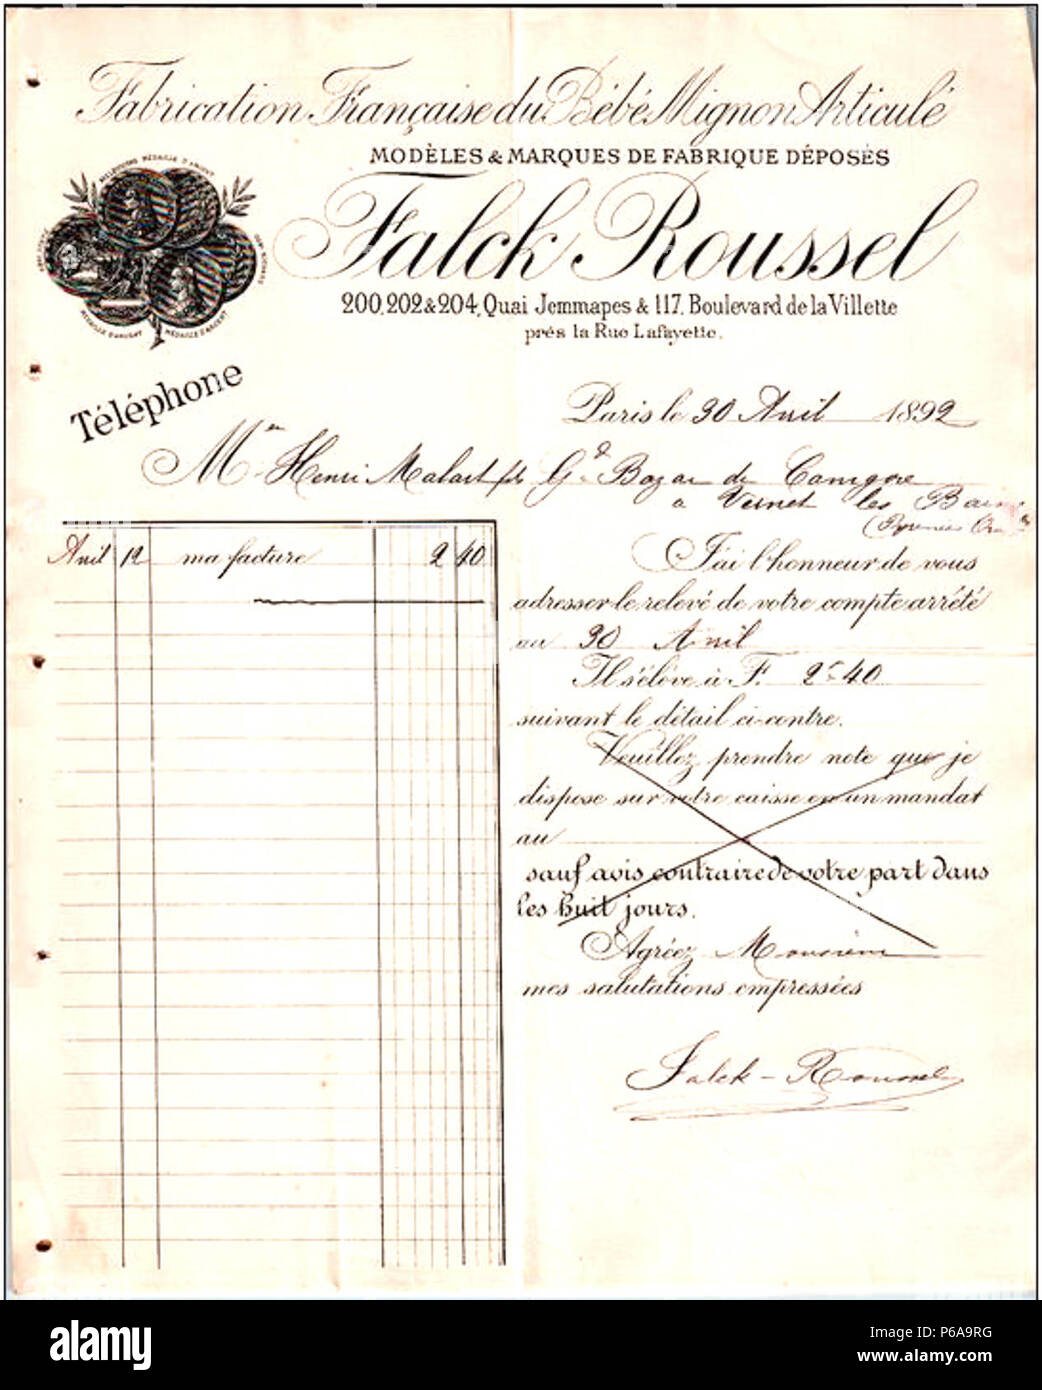 Fabrication Française du Bébé Mignon Articulé
MODÈLES & MARQUES DE FABRIQUE DÉPOSÉS
Falck Roussel
200, 202 & 204, Quai Jemmapes & 117, Boulevard de la Villette
près la Rue Lafayette.
MÉDAILLE D'ARGENT
MÉDAILLE D'ARGENT
MÉDAILLE D'ARGENT
Téléphone
Paris le 30 Avril 1892
Henri Malart fils Gd Bazar du Canigou
à Vernet les Bains
(Pyrénées
Avril 12 ma facture 2 40
J'ai l'honneur de vous
adresser le relevé de votre compte arrêté
au 30 Avril
Il s'élève à F. 2f 40
suivant le détail ci-contre.
Veuillez prendre note que je
dispose sur votre caisse en un mandat
au
sauf avis contraire de votre part dans
les huit jours.
Agréez Monsieur
mes salutations empressées
Falck-Roussel
alamy
Image ID: P6A9RG
www.alamy.com